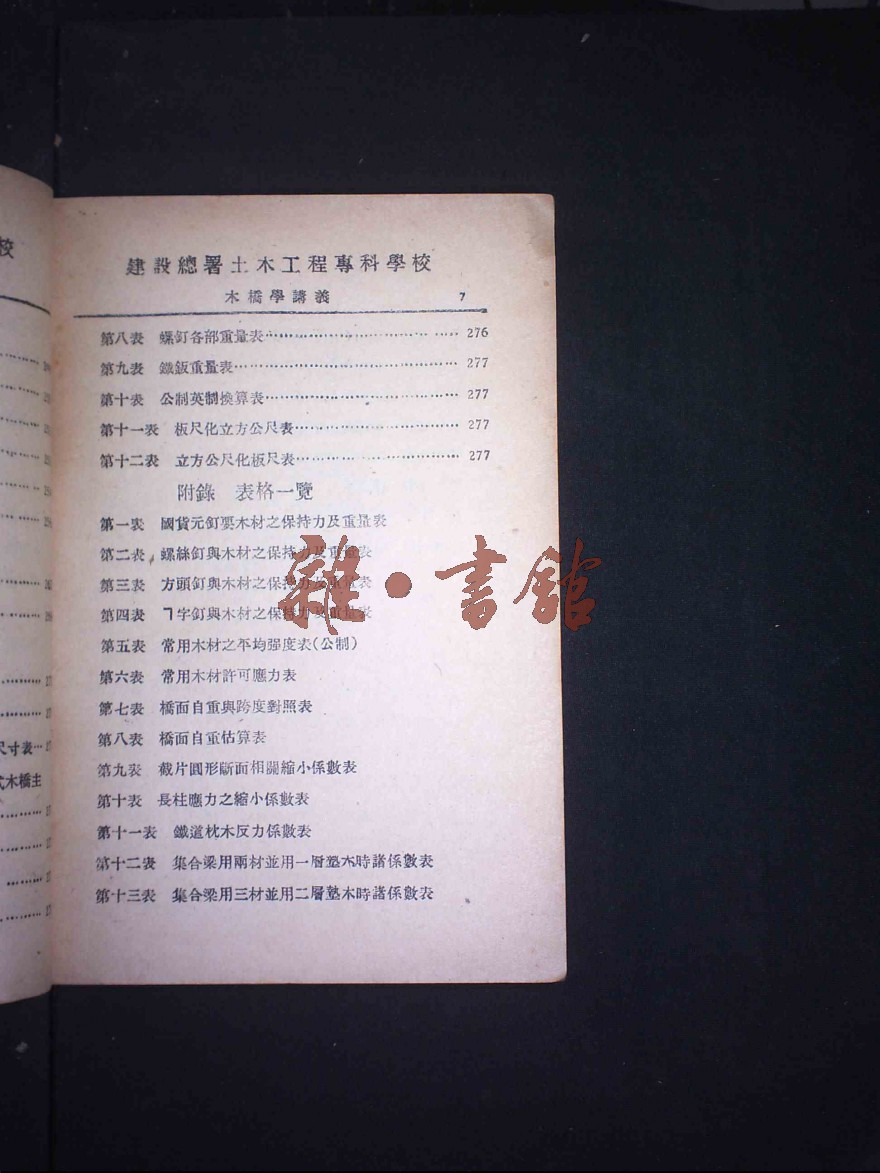 校
尺寸表…
式木橋主
建設總署土木工程專科學校
木橋學講義 7
第八表 螺釘各部重量表 276
第九表 鐵鈑重量表 277
第十表 公制英制換算表 277
第十一表 板尺化立方公尺表 277
第十二表 立方公尺化板尺表 277
附錄 表格一覽
第一表 國貨元釘要木材之保持力及重量表
第二表 螺絲釘與木材之保持力及重量表
第三表 方頭釘與木材之保持力及重量表
第四表 ㄱ字釘與木材之保持力及重量表
第五表 常用木材之平均强度表(公制)
第六表 常用木材許可應力表
第七表 橋面自重與跨度對照表
第八表 橋面自重估算表
第九表 截片圓形斷面相關縮小係數表
第十表 長柱應力之縮小係數表
第十一表 鐵道枕木反力係數表
第十二表 集合梁用兩材並用一層墊木時諸係數表
第十三表 集合梁用三材並用二層墊木時諸係數表
雜·書館